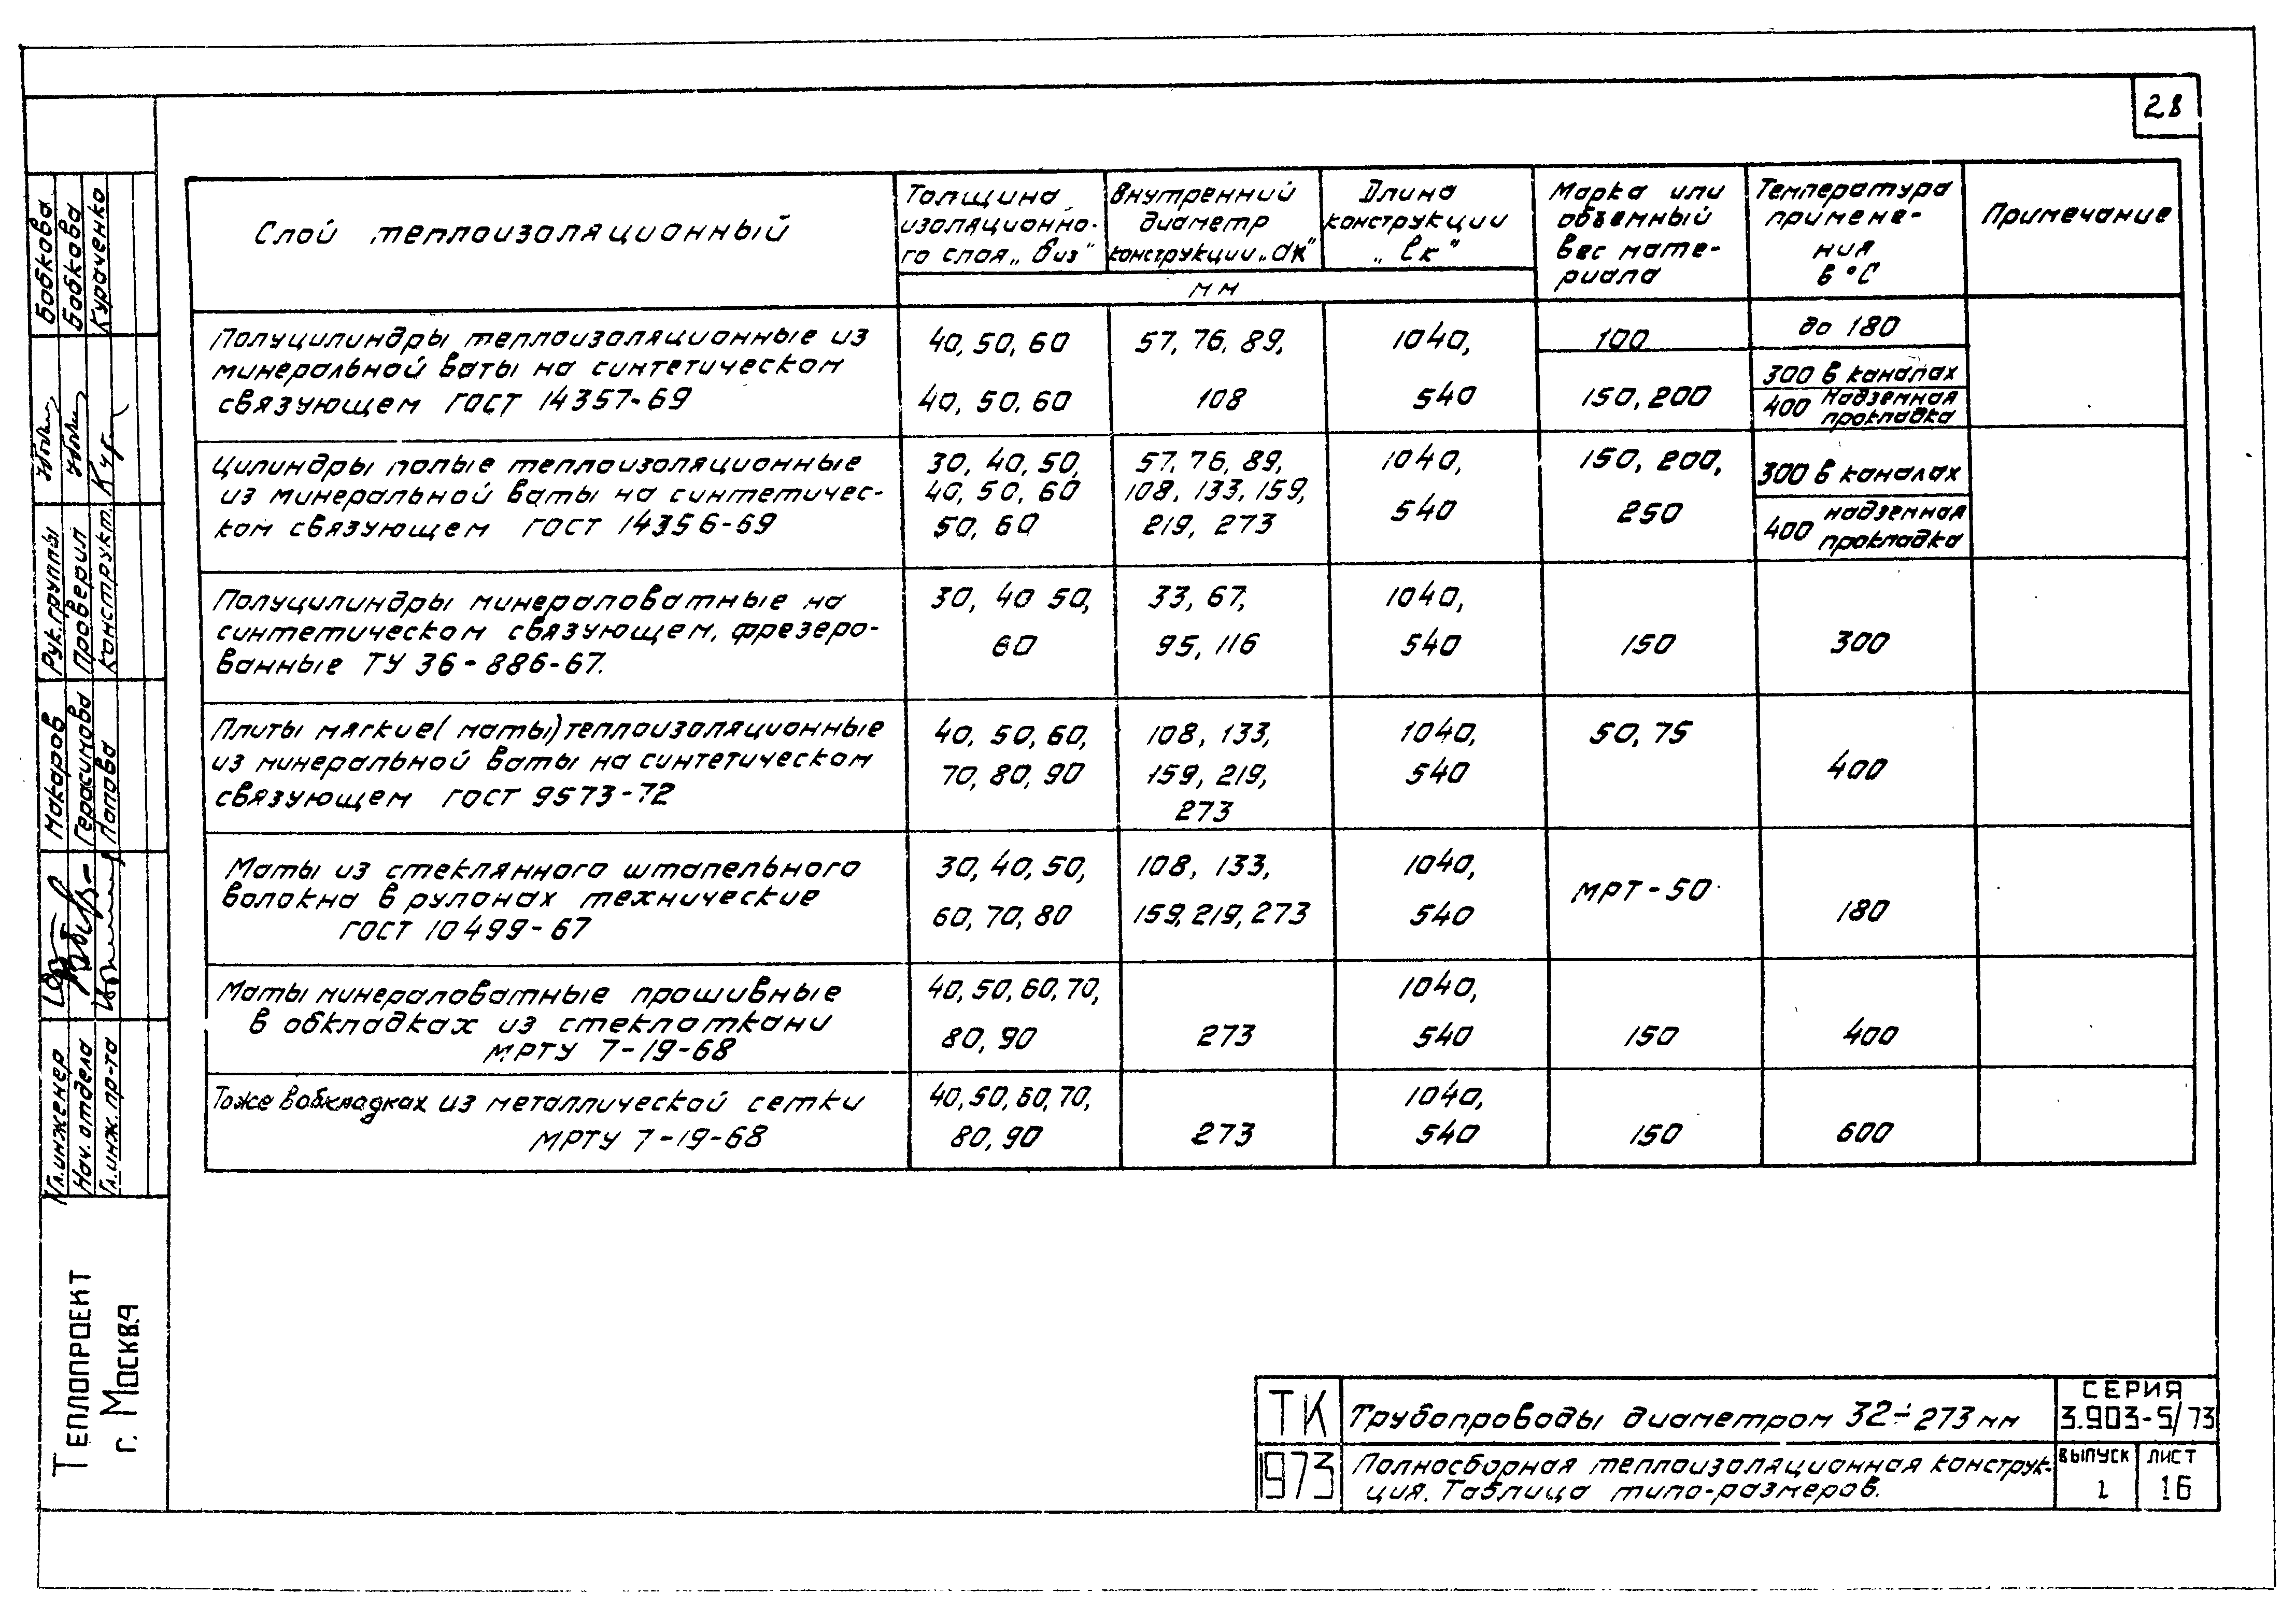 28
Слой теплоизоляционный
Толщина
изоляционно-
го слоя „биз"
Внутренний
диаметр
конструкции „dк"
Длина
конструкции
„ lк"
мм
Марка или
объемный
вес мате-
риала
Температура
примене-
ния
в °С
Примечание
Полуцилиндры теплоизоляционные из
минеральной ваты на синтетическом
связующем ГОСТ 14357-69
40, 50, 60
40, 50, 60
57, 76, 89,
108
1040,
540
100
150, 200
до 180
300 в каналах
400 надземная
прокладка
Цилиндры полые теплоизоляционные
из минеральной ваты на синтетичес-
ком связующем ГОСТ 14356-69
30, 40, 50,
40, 50, 60
50, 60
57, 76, 89,
108, 133, 159,
219, 273
1040,
540
150, 200,
250
300 в каналах
400 надземная
прокладка
Полуцилиндры минераловатные на
синтетическом связующем, фрезеро-
ванные ТУ 36-886-67.
30, 40 50,
60
33, 67,
95, 116
1040,
540
150
300
Плиты мягкие (маты) теплоизоляционные
из минеральной ваты на синтетическом
связующем ГОСТ 9573-72
40, 50, 60,
70, 80, 90
108, 133,
159, 219,
273
1040,
540
50, 75
400
Маты из стеклянного штапельного
волокна в рулонах технические
ГОСТ 10499-67
30, 40, 50,
60, 70, 80
108, 133,
159, 219, 273
1040,
540
МРТ-50
180
Маты минераловатные прошивные
в обкладках из стеклоткани
МРТУ 7-19-68
40, 50, 60, 70,
80, 90
273
1040,
540
150
400
Тоже в обкладках из металлической сетки
МРТУ 7-19-68
40, 50, 60, 70,
80, 90
273
1040,
540
150
600
Бобкова
Бобкова
Кураченко
Рук. группы
Проверил
Конструкт.
Макаров
Герасимова
Попова
Гл. инженер
Нач. отдела
Гл. инж. пр-та
Теплопроект
г. Москва
ТК
1973
Трубопроводы диаметром 32÷273 мм
Полносборная теплоизоляционная конструк-
ция. Таблица типо-размеров.
СЕРИЯ
3.903-5/73
ВЫПУСК
1
ЛИСТ
16